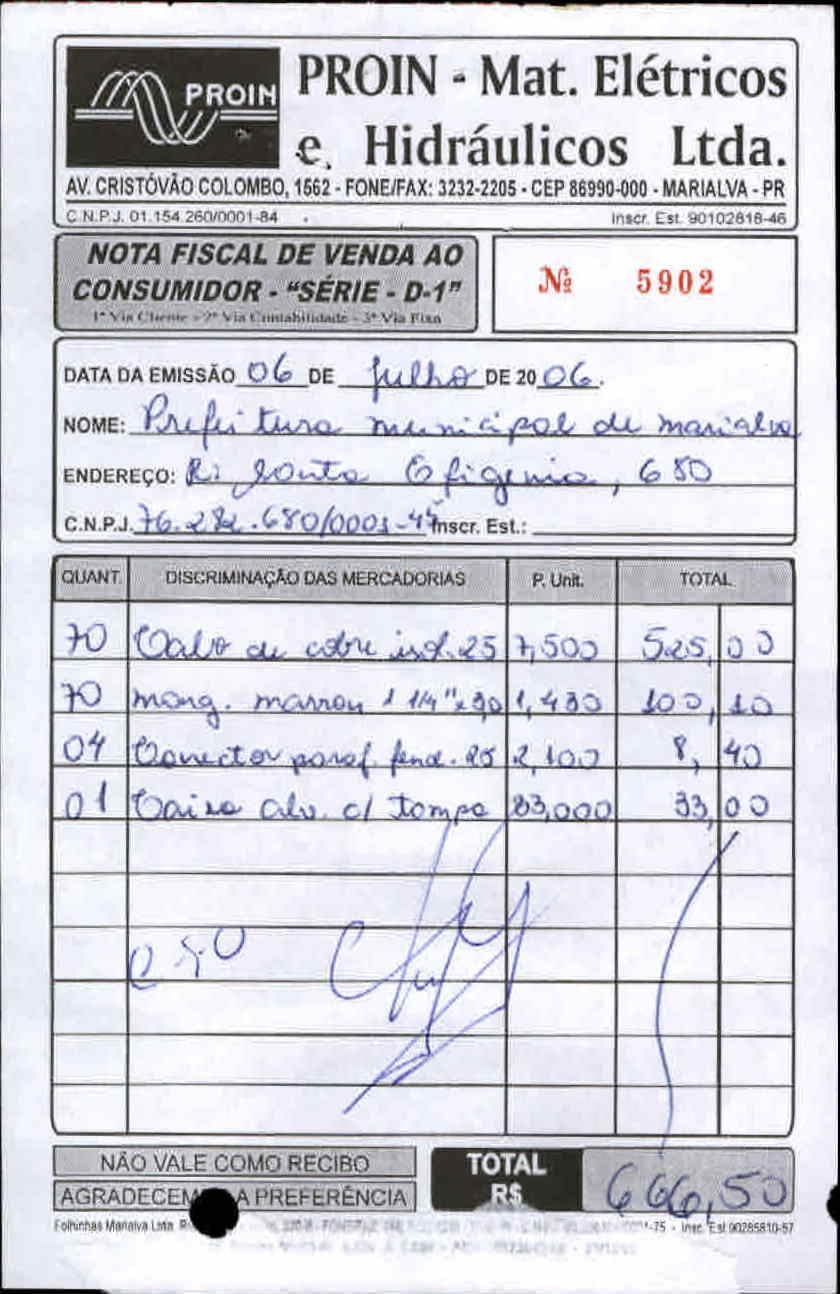 PROIN
PROIN - Mat. Elétricos
e. Hidráulicos Ltda.
AV. CRISTÓVÃO COLOMBO, 1562 - FONE/FAX: 3232-2205 - CEP 86990-000 - MARIALVA - PR
C.N.P.J. 01.154.260/0001-84 Inscr. Est. 90102818-46
NOTA FISCAL DE VENDA AO
CONSUMIDOR - "SÉRIE - D-1"
1ª Via Cliente - 2ª Via Contabilidade - 3ª Via Fixa
Nº 5902
DATA DA EMISSÃO 06 DE Julho DE 20 06.
NOME: Prefeitura municipal de marialva
ENDEREÇO: R: Santa Efigenia, 680
C.N.P.J. 76.282.680/0001-45 Inscr. Est.:
QUANT. DISCRIMINAÇÃO DAS MERCADORIAS P. Unit. TOTAL
70 Cabo de cobre isol. 25 7,500 525,00
70 mang. marron 1 1/4" x 1,430 100,10
04 Conector paraf. fend. 25 2,100 8,40
01 Caixa alv. c/ tampa 33,000 33,00
NÃO VALE COMO RECIBO
AGRADECEM A PREFERÊNCIA
TOTAL
R$ 666,50
Folhinhas Marialva Ltda. -75 - Insc. Est 90285810-57